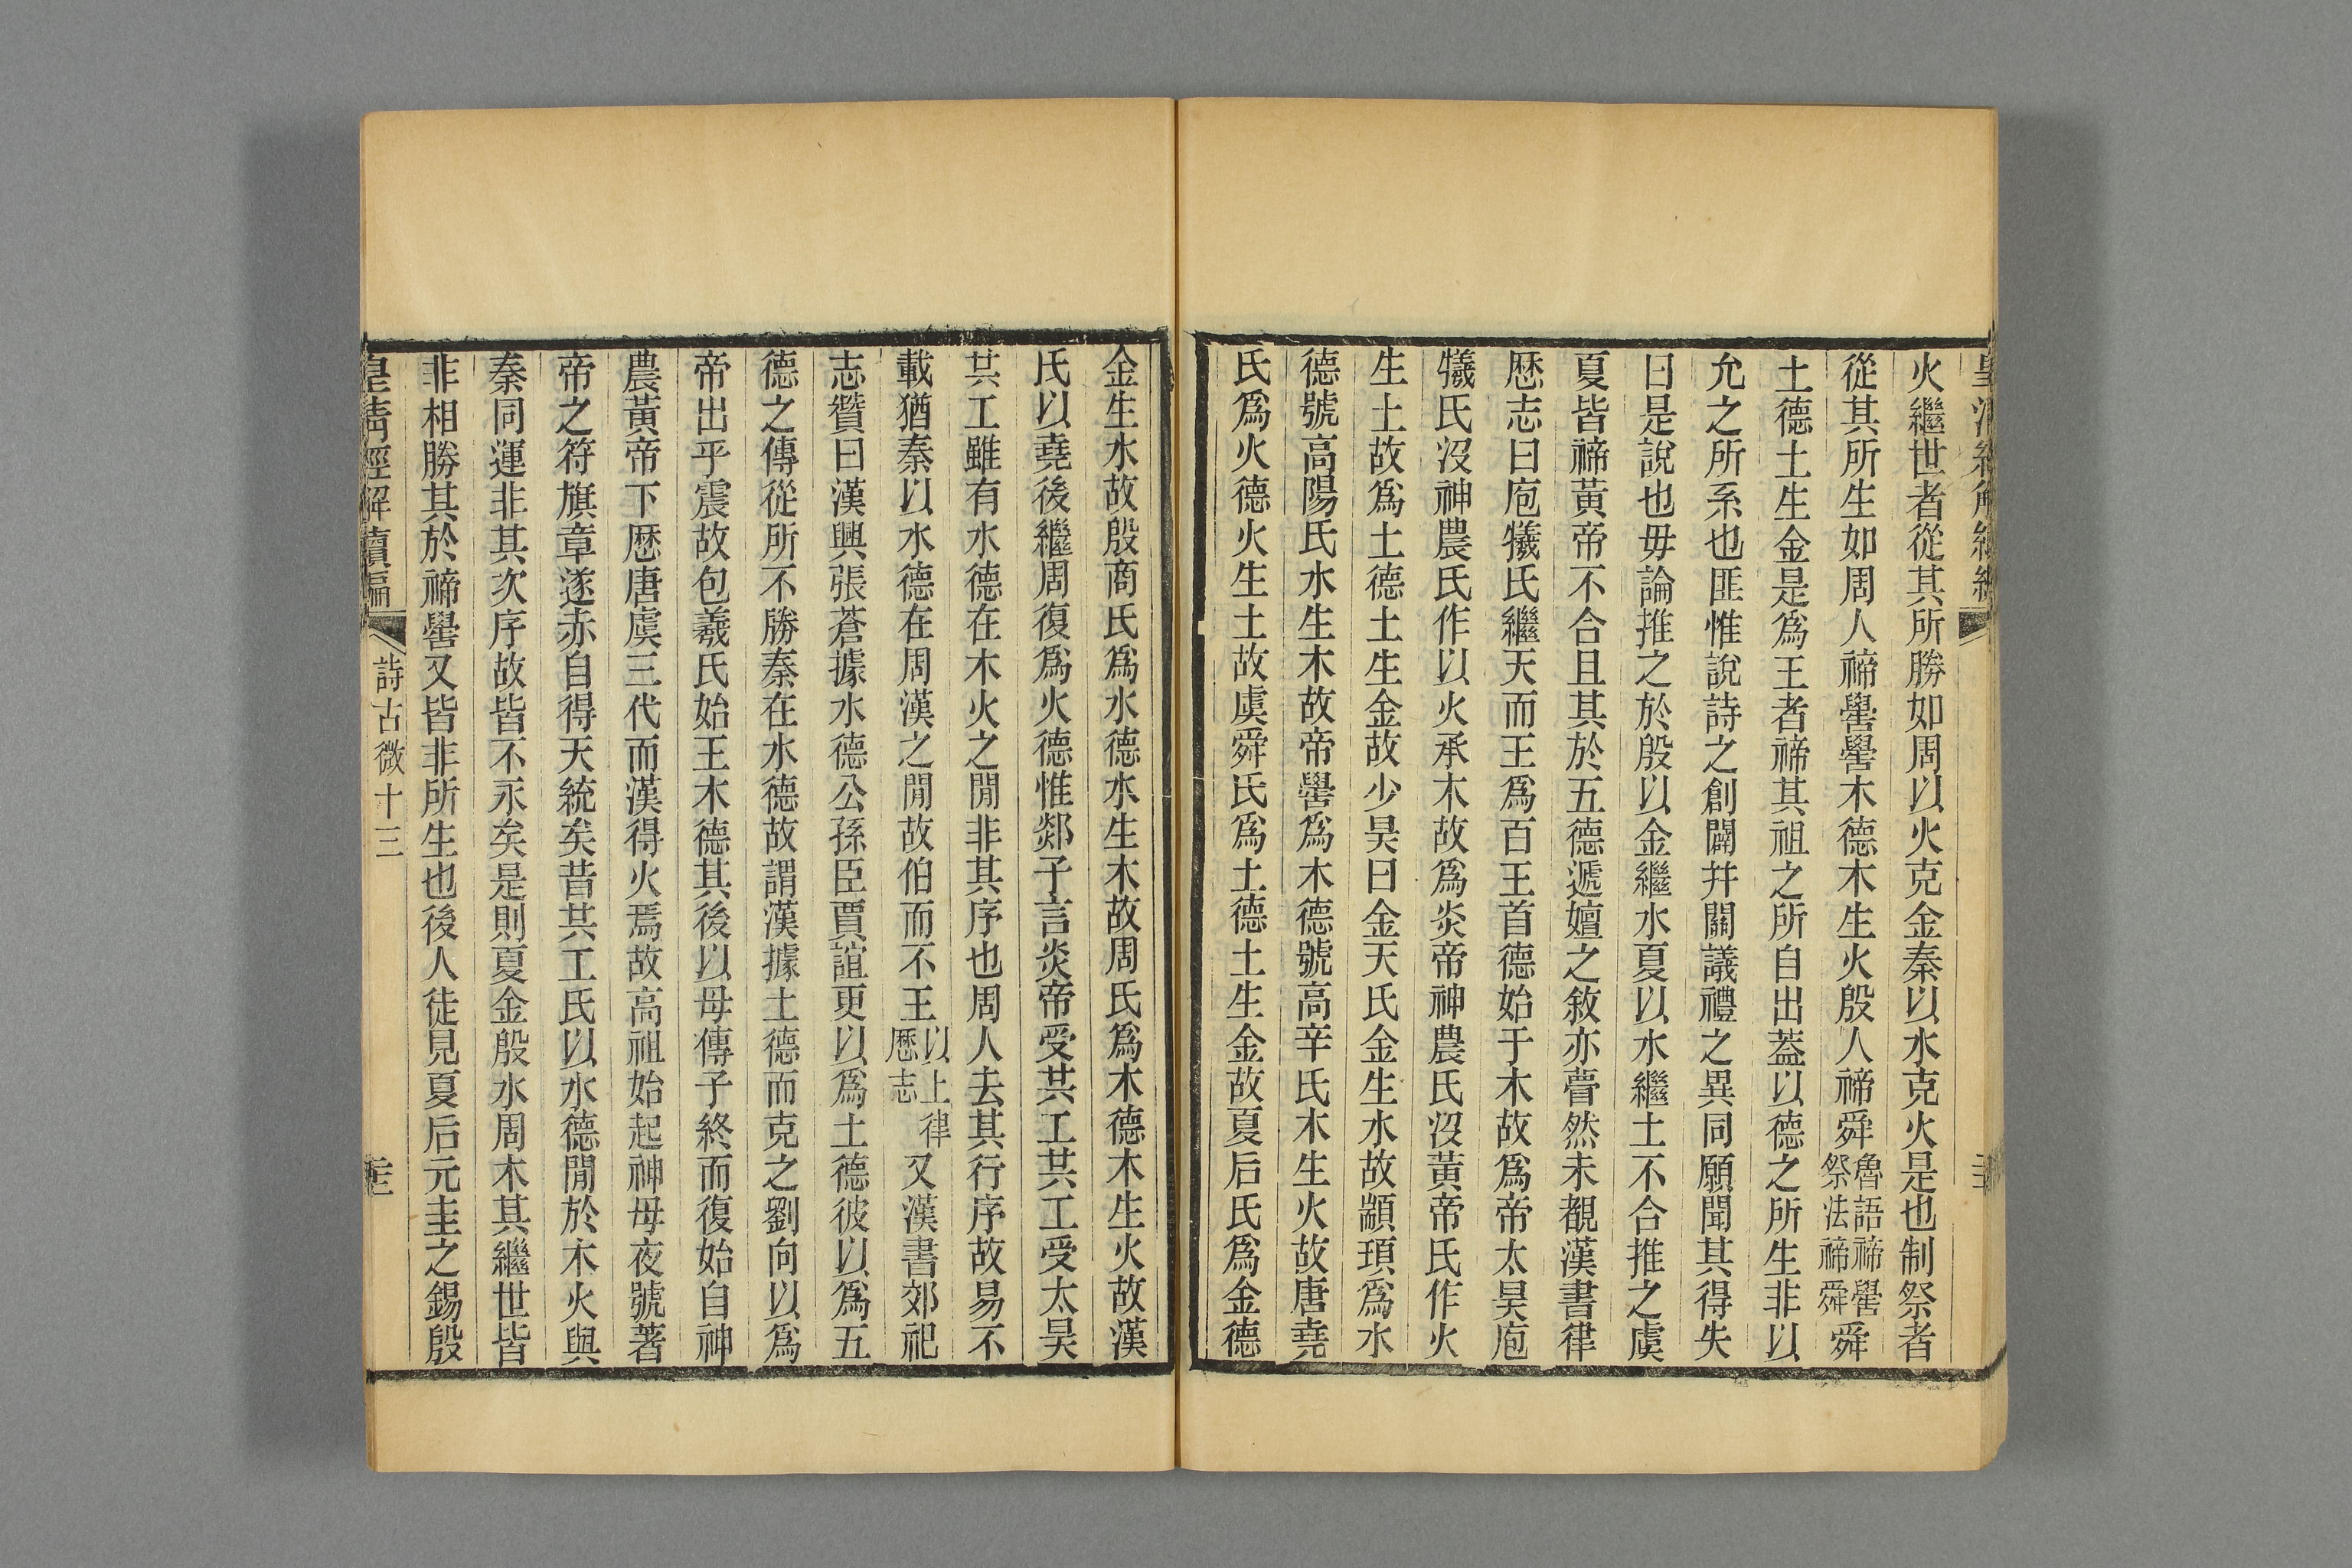 火繼世者從其所勝如周以火克金秦以水克火是也制祭者
從其所生如周人禘嚳嚳木德木生火殷人禘舜魯語禘嚳祭法禘舜舜
土德土生金是爲王者禘其祖之所自出蓋以德之所生非以
允之所系也匪惟說詩之創闢幷關議禮之異同願聞其得失
曰是說也毋論推之於殷以金繼水夏以水繼土不合推之虞
夏皆禘黃帝不合且其於五德遞嬗之敘亦瞢然未覩漢書律
歷志曰庖犧氏繼天而王爲百王首德始于木故爲帝太昊庖
犧氏沒神農氏作以火承木故爲炎帝神農氏沒黃帝氏作火
生土故爲土德土生金故少昊曰金天氏金生水故顓頊爲水
德號高陽氏水生木故帝嚳爲木德號高辛氏木生火故唐堯
氏爲火德火生土故虞舜氏爲土德土生金故夏后氏爲金德
金生水故殷商氏爲水德水生木故周氏爲木德木生火故漢
氏以堯後繼周復爲火德惟郯子言炎帝受共工共工受太昊
共工雖有水德在木火之閒非其序也周人去其行序故易不
載猶秦以水德在周漢之閒故伯而不王以上律歷志又漢書郊祀
志贊曰漢興張蒼據水德公孫臣賈誼更以爲土德彼以爲五
德之傳從所不勝秦在水德故謂漢據土德而克之劉向以爲
帝出乎震故包羲氏始王木德其後以母傳子終而復始自神
農黃帝下歷唐虞三代而漢得火焉故高祖始起神母夜號著
帝之符旗章遂赤自得天統矣昔共工氏以水德閒於木火與
秦同運非其次序故皆不永矣是則夏金殷水周木其繼世皆
非相勝其於禘嚳又皆非所生也後人徒見夏后元圭之錫殷
皇淸經解續編
詩古微十三